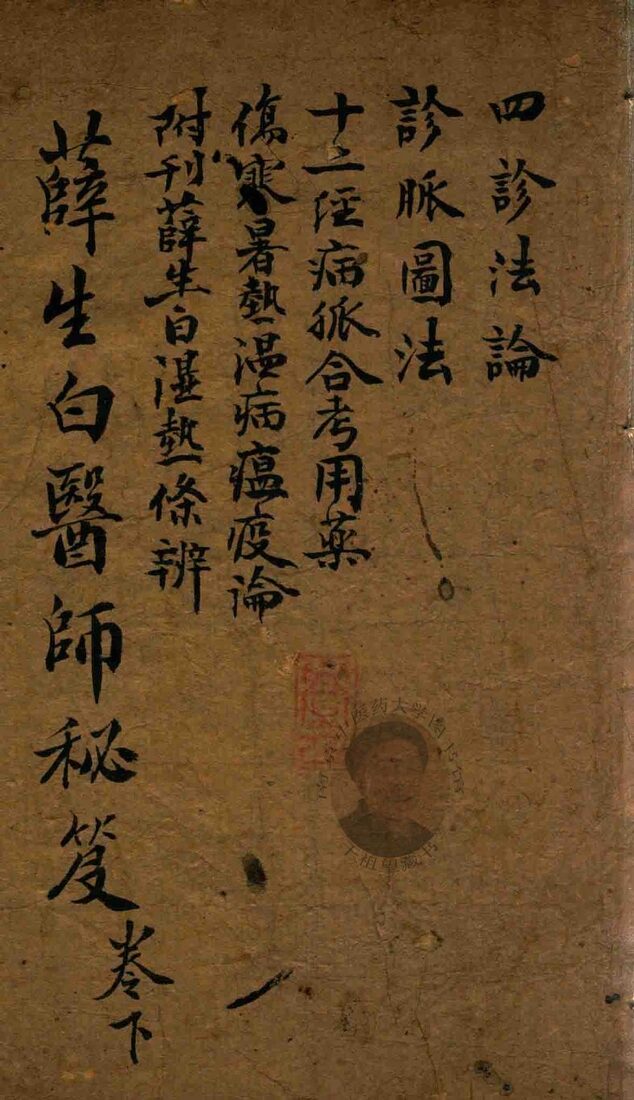 四診法論
診脈圖法
十二経病脈合考用藥
傷寒暑熱温病瘟疫論
附刊薛生白濕熱條辨
薛生白醫師秘笈 卷下
医药大学图